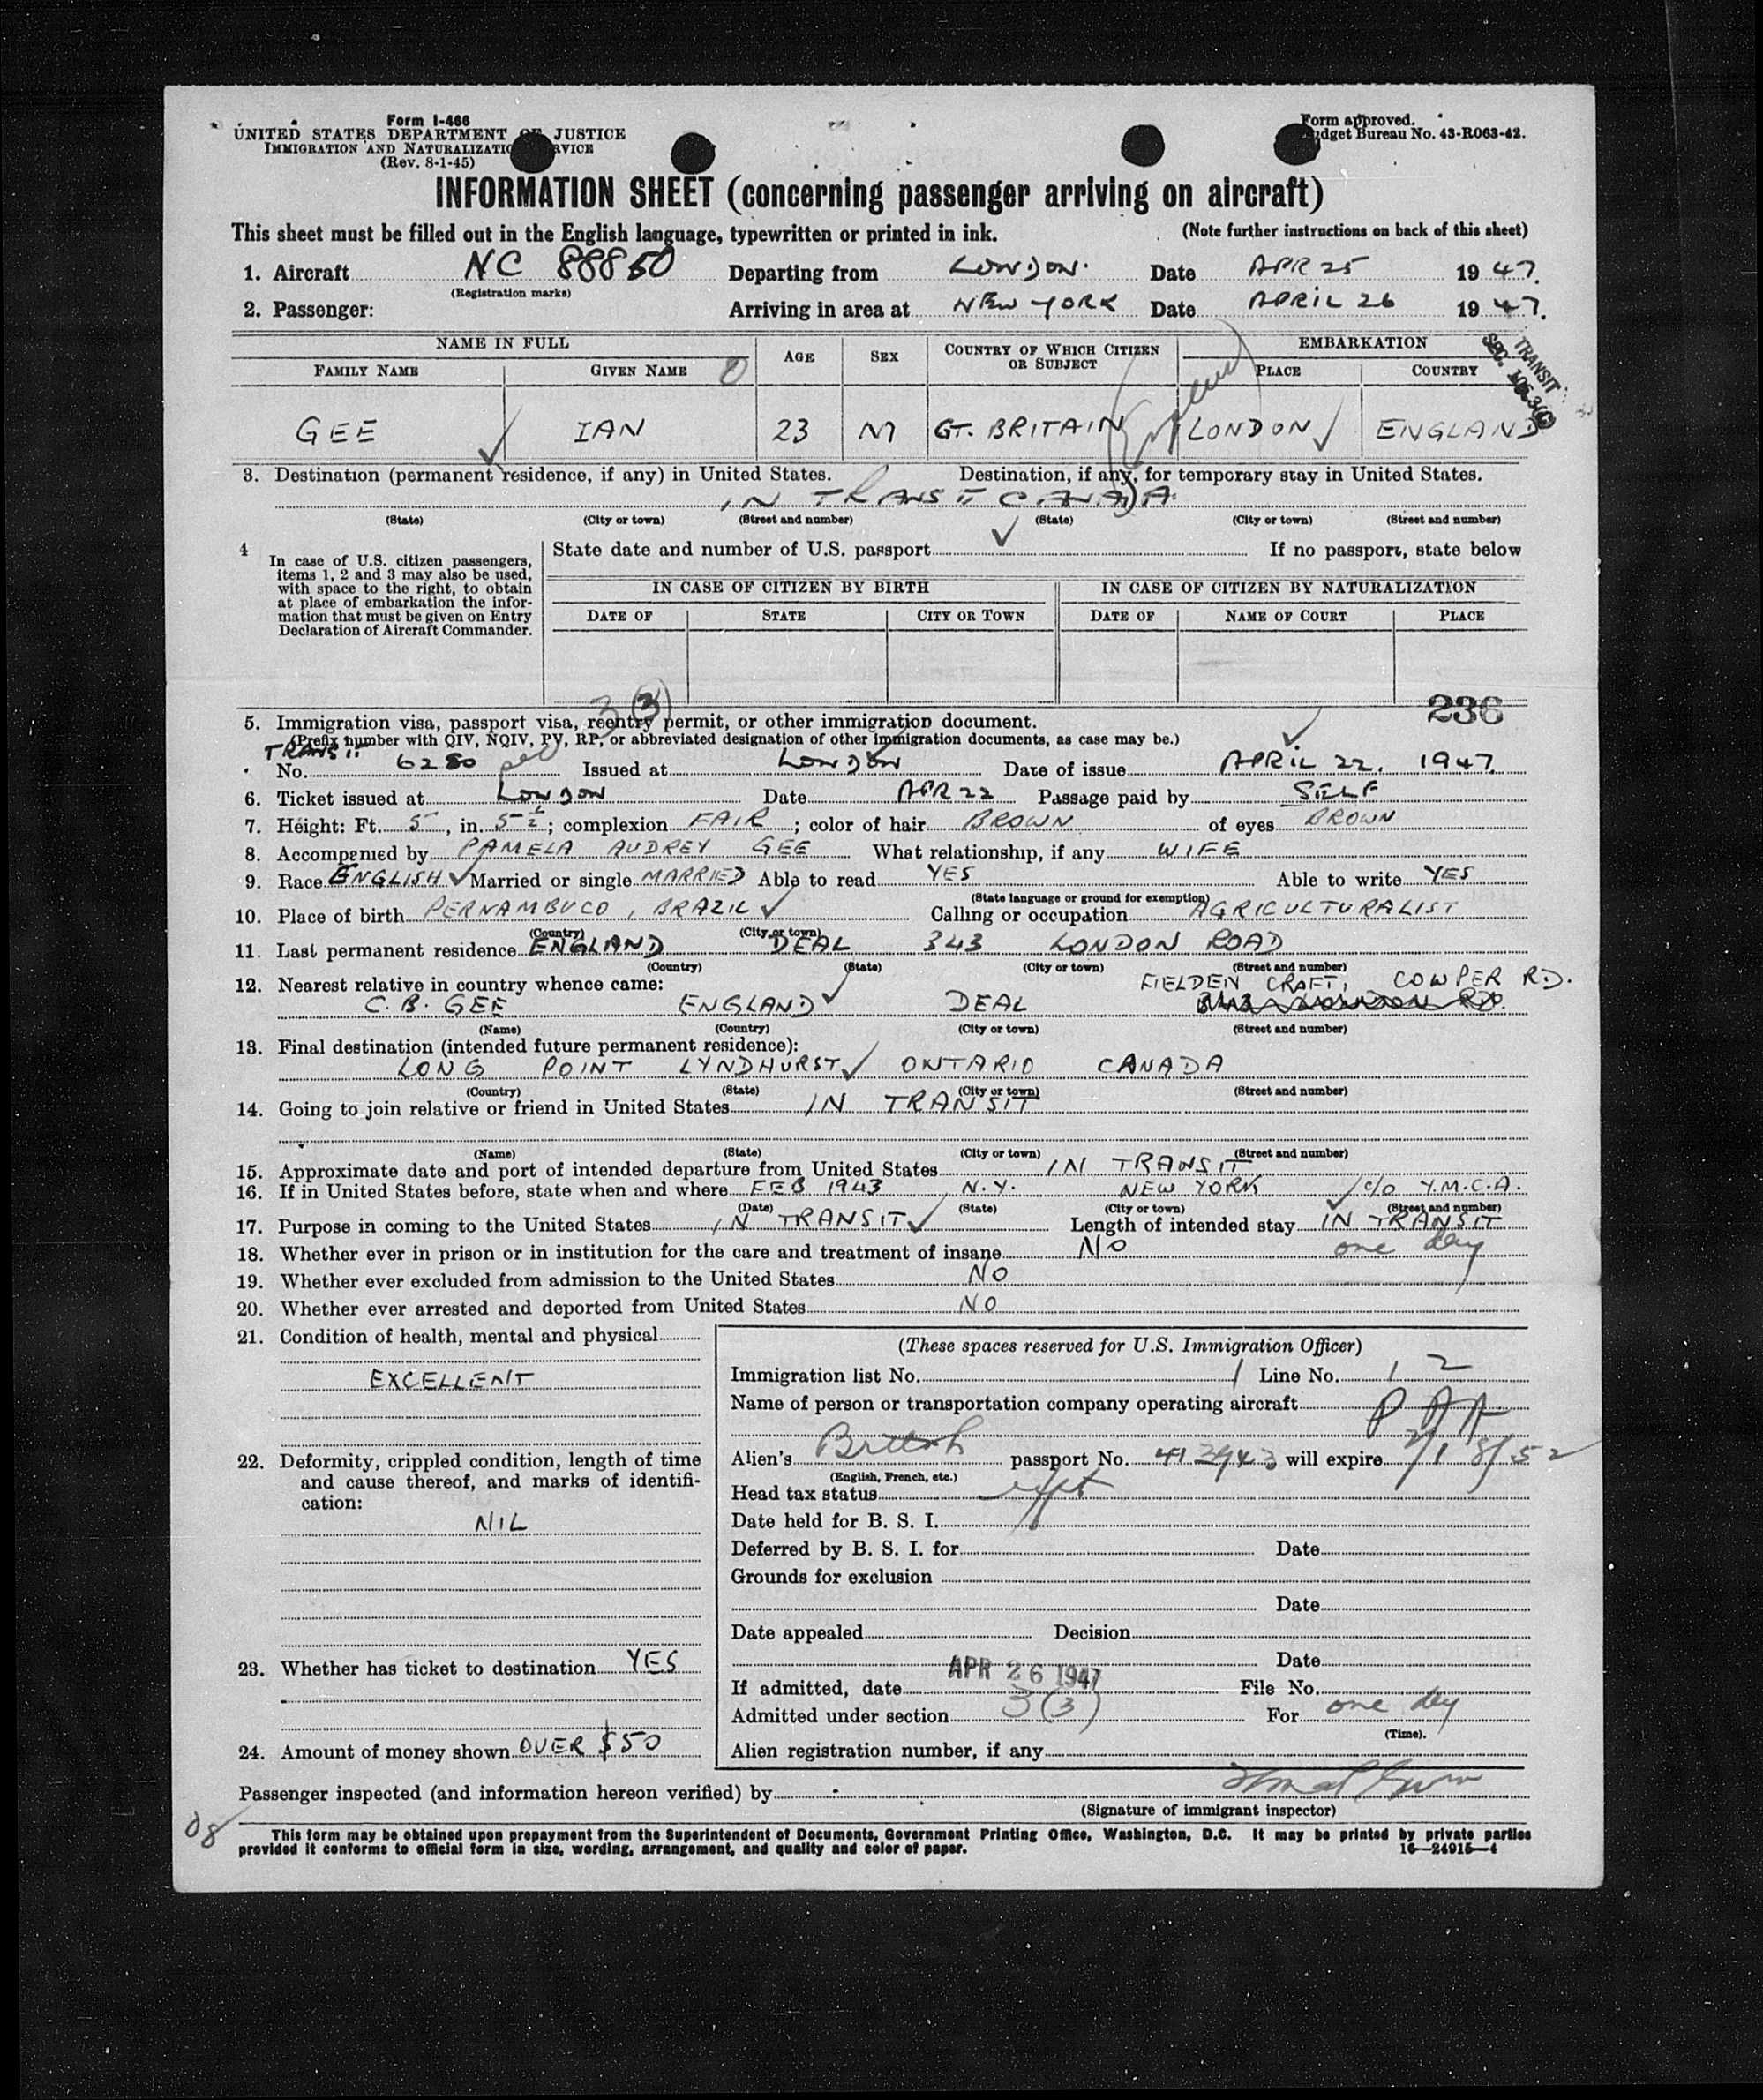 Form I-466
UNITED STATES DEPARTMENT OF JUSTICE
IMMIGRATION AND NATURALIZATION SERVICE
(Rev. 8-1-45)
Form approved.
Budget Bureau No. 43-R063-42.
INFORMATION SHEET (concerning passenger arriving on aircraft)
This sheet must be filled out in the English language, typewritten or printed in ink. (Note further instructions on back of this sheet)
1. Aircraft NC 88850 Departing from LONDON. Date APR 25 1947.
(Registration marks)
2. Passenger: Arriving in area at NEW YORK Date APRIL 26 1947.
TRANSIT
NAME IN FULL AGE SEX COUNTRY OF WHICH CITIZEN OR SUBJECT EMBARKATION
FAMILY NAME GIVEN NAME PLACE COUNTRY
GEE IAN 23 M GT. BRITAIN LONDON ENGLAND
3. Destination (permanent residence, if any) in United States. Destination, if any, for temporary stay in United States.
IN TRANSIT CANADA
(State) (City or town) (Street and number) (State) (City or town) (Street and number)
4 In case of U.S. citizen passengers, items 1, 2 and 3 may also be used, with space to the right, to obtain at place of embarkation the information that must be given on Entry Declaration of Aircraft Commander.
State date and number of U.S. passport If no passport, state below
IN CASE OF CITIZEN BY BIRTH IN CASE OF CITIZEN BY NATURALIZATION
DATE OF STATE CITY OR TOWN DATE OF NAME OF COURT PLACE
236
3 (3)
5. Immigration visa, passport visa, reentry permit, or other immigration document.
(Prefix number with QIV, NQIV, PV, RP, or abbreviated designation of other immigration documents, as case may be.)
TRANSIT
No. 6280 Issued at LONDON Date of issue APRIL 22. 1947.
6. Ticket issued at LONDON Date APR 22 Passage paid by SELF
7. Height: Ft. 5, in. 5 1/2; complexion FAIR; color of hair BROWN of eyes BROWN
8. Accompanied by PAMELA AUDREY GEE What relationship, if any WIFE
9. Race ENGLISH Married or single MARRIED Able to read YES Able to write YES
(State language or ground for exemption)
10. Place of birth PERNAMBUCO, BRAZIL Calling or occupation AGRICULTURALIST
(Country) (City or town)
11. Last permanent residence ENGLAND DEAL 343 LONDON ROAD
(Country) (State) (City or town) (Street and number)
12. Nearest relative in country whence came: FIELDEN CRAFT, COWPER RD.
C. B. GEE ENGLAND DEAL
(Name) (Country) (City or town) (Street and number)
13. Final destination (intended future permanent residence):
LONG POINT LYNDHURST ONTARIO CANADA
(Country) (State) (City or town) (Street and number)
14. Going to join relative or friend in United States IN TRANSIT
(Name) (State) (City or town) (Street and number)
15. Approximate date and port of intended departure from United States IN TRANSIT
16. If in United States before, state when and where FEB 1943 N.Y. NEW YORK c/o Y.M.C.A.
(Date) (State) (City or town) (Street and number)
17. Purpose in coming to the United States IN TRANSIT Length of intended stay IN TRANSIT
one day
18. Whether ever in prison or in institution for the care and treatment of insane NO
19. Whether ever excluded from admission to the United States NO
20. Whether ever arrested and deported from United States NO
21. Condition of health, mental and physical
EXCELLENT
22. Deformity, crippled condition, length of time and cause thereof, and marks of identification:
NIL
23. Whether has ticket to destination YES
24. Amount of money shown OVER $50
(These spaces reserved for U.S. Immigration Officer)
Immigration list No. 1 Line No. 12
Name of person or transportation company operating aircraft P A A
Alien's British passport No. 413943 will expire
(English, French, etc.)
Head tax status
Date held for B. S. I.
Deferred by B. S. I. for Date
Grounds for exclusion
Date
Date appealed Decision
Date
If admitted, date APR 26 1947 File No.
Admitted under section 3(3) For one day
(Time).
Alien registration number, if any
Passenger inspected (and information hereon verified) by
(Signature of immigrant inspector)
08
This form may be obtained upon prepayment from the Superintendent of Documents, Government Printing Office, Washington, D.C. It may be printed by private parties
provided it conforms to official form in size, wording, arrangement, and quality and color of paper. 16—24915-4